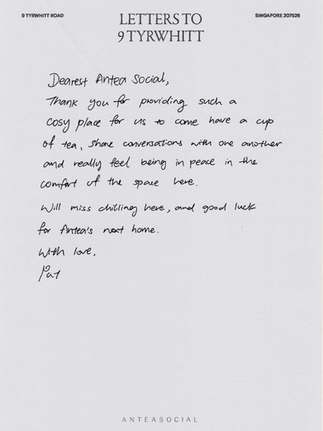 9 TYRWHITT ROAD
LETTERS TO
SINGAPORE 207528
9 TYRWHITT
Dearest Antea Social,
Thank you for providing such a
cosy place for us to come have a cup
of tea, share conversations with one another
and really feel being in peace in the
comfort of the space here.
Will miss chilling here, and good luck
for Antea's next home.
With love,
Pat
ANTEASOCIAL